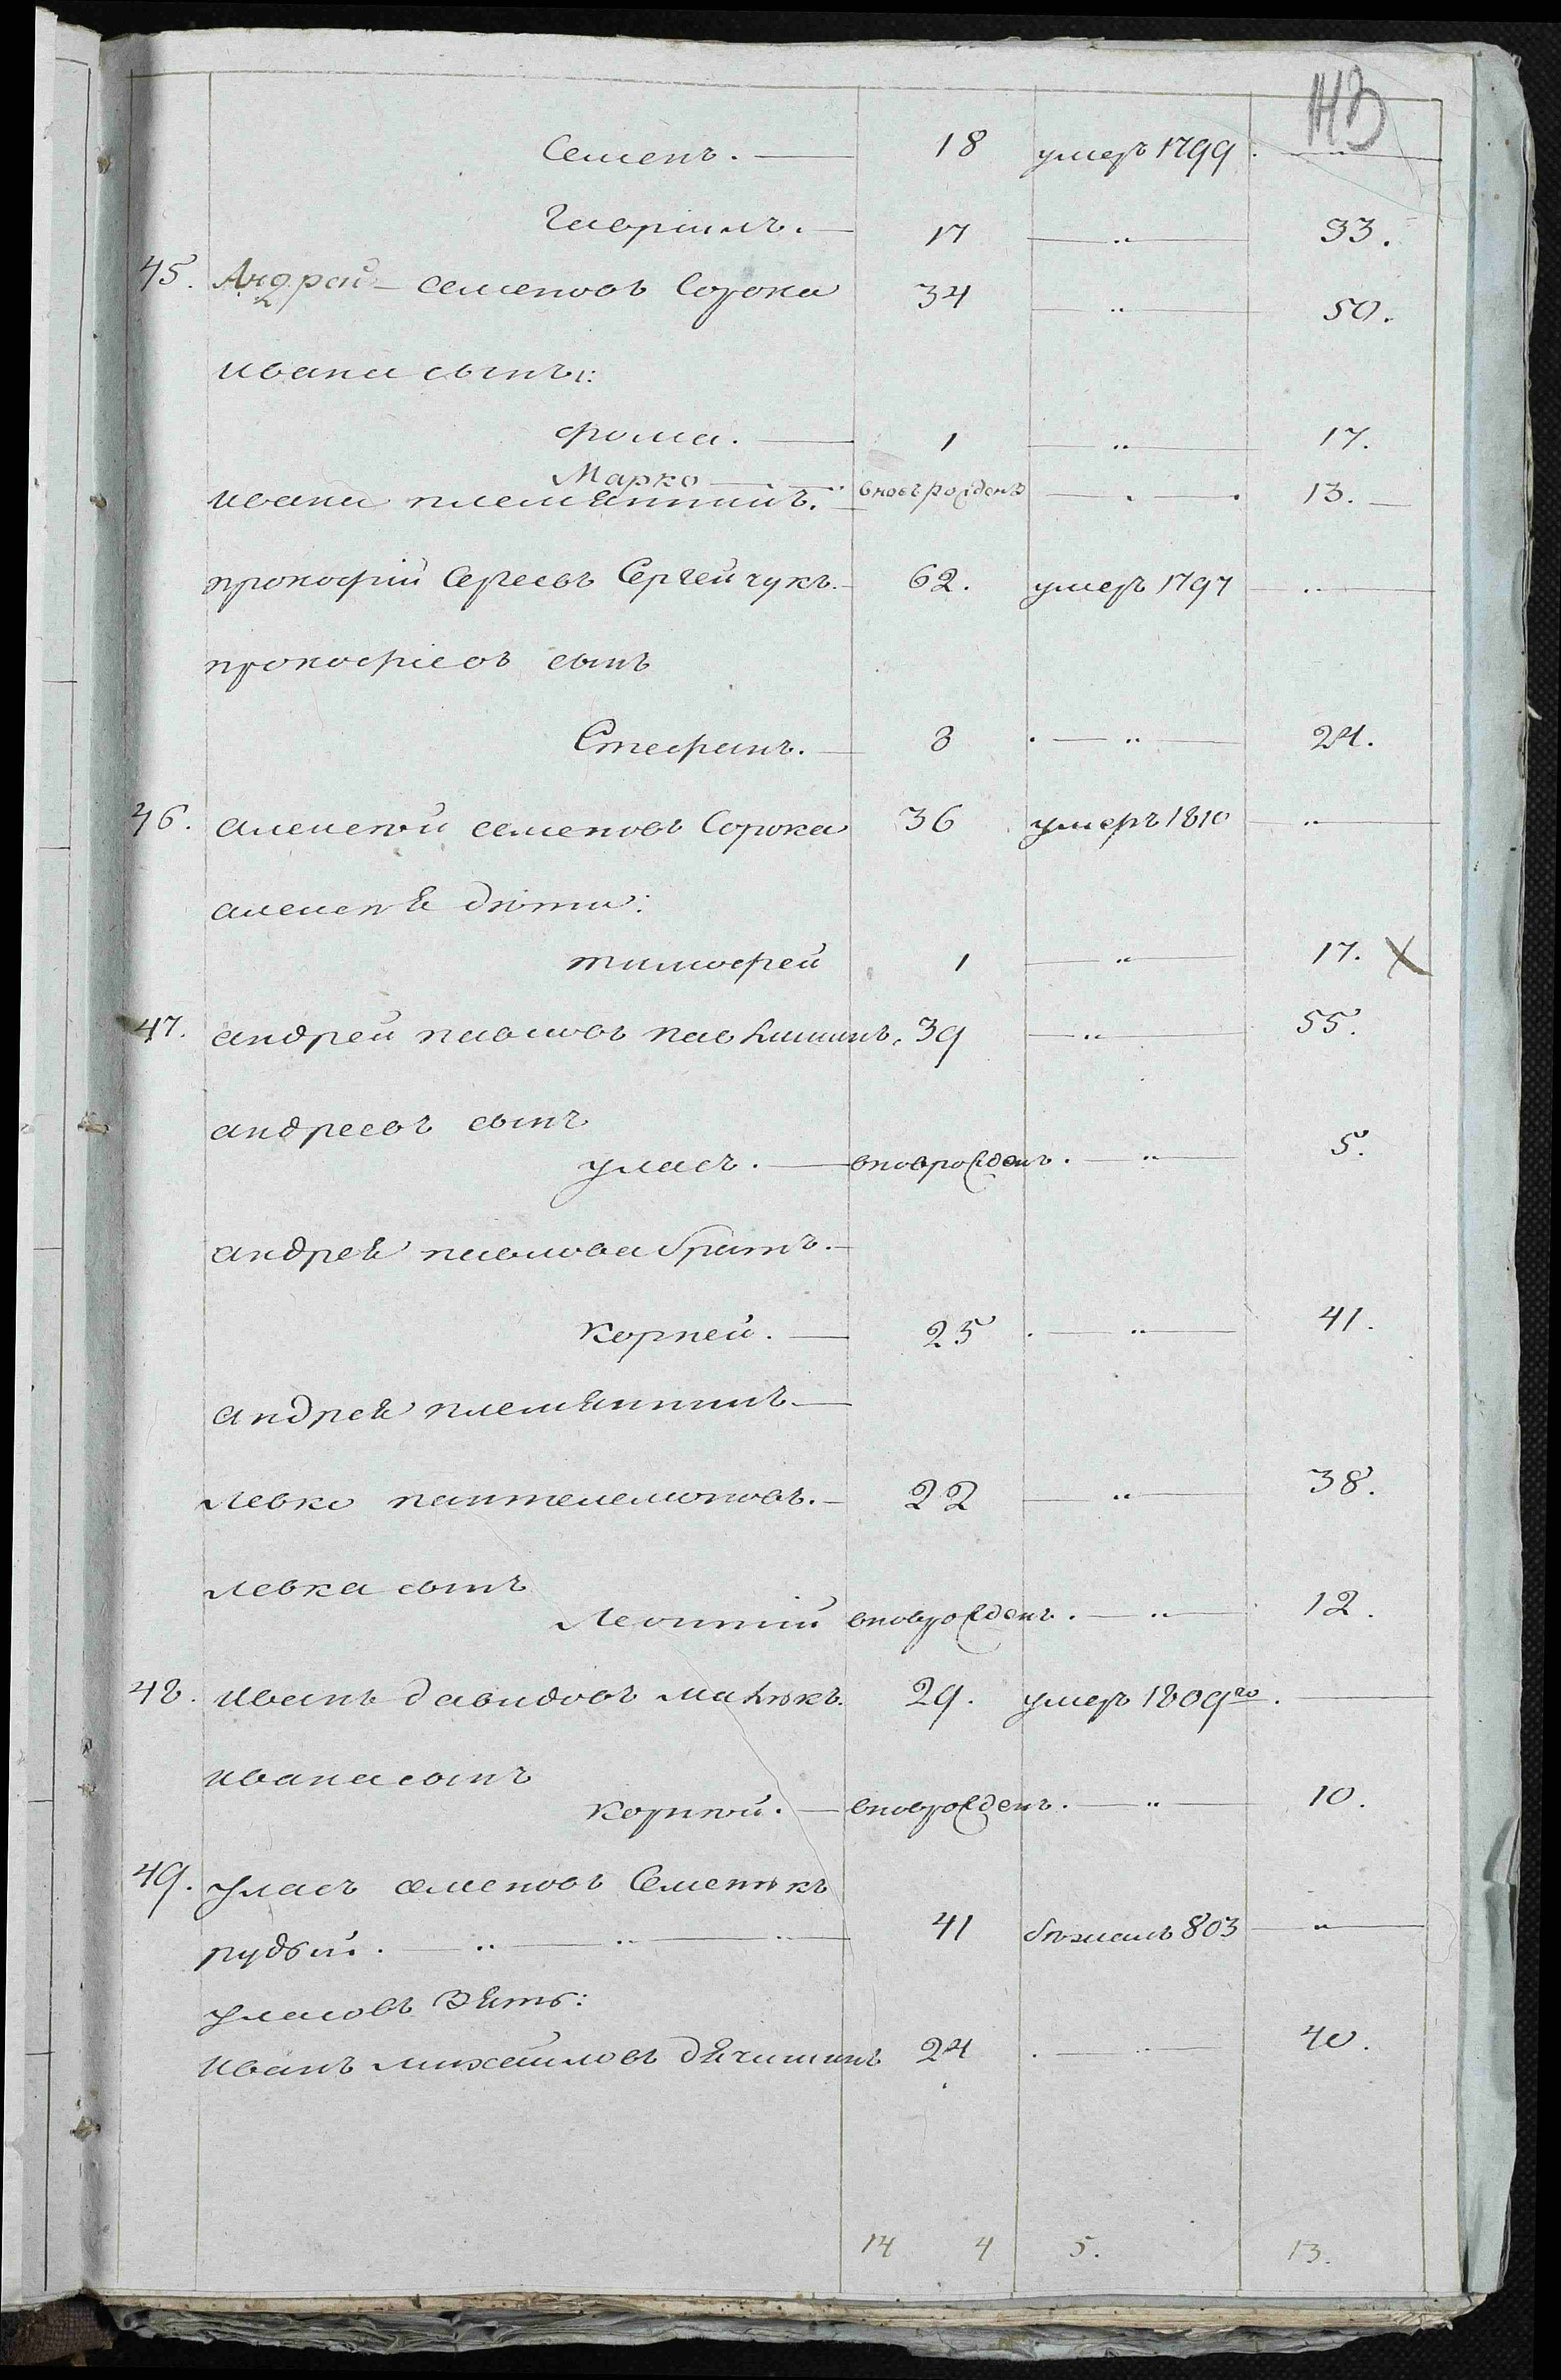 113
Семенъ. — 18 умеръ 1799. — „ —
Гавріилъ. — 17 — „ — 33.
45. Андрей — семеновъ Сорока 34 — „ — 50.
ивана сынъ:
фома. — 1 — „ — 17.
Марко — вновърожденъ — „ — 13. —
ивана племянникъ. —
прокофій Сергеевъ Сергейчукъ. — 62. умеръ 1797 — „ —
прокофіевъ сынъ
Стефанъ. — 8 — „ — 24.
46. алексей семеновъ Сорока 36 умеръ 1810 — „ —
алексея дѣти:
тимофей 1 — „ — 17. X
47. андрей павловъ павлишинъ. 39 — „ — 55.
андреевъ сынъ
уласъ. — вноврожденъ. — „ — 5.
андрея павлова братъ. —
Корней. — 25 — „ — 41.
андрея племянникъ —
левко пантелемоновъ. — 22 — „ — 38.
левка сынъ
Леонтій вноврожденъ. — „ — 12.
48. иванъ давидовъ 29. умеръ 1809го. —
ивана сынъ
Корней. — вноврожденъ. — „ — 10.
49. уласъ семеновъ Семенюкъ
рудый. — „ — „ — „ — 41 бѣжалъ 803 — „ —
уласовъ зять:
иванъ михайловъ дячишинъ 24 — „ — 40.
14 4 5. 13.